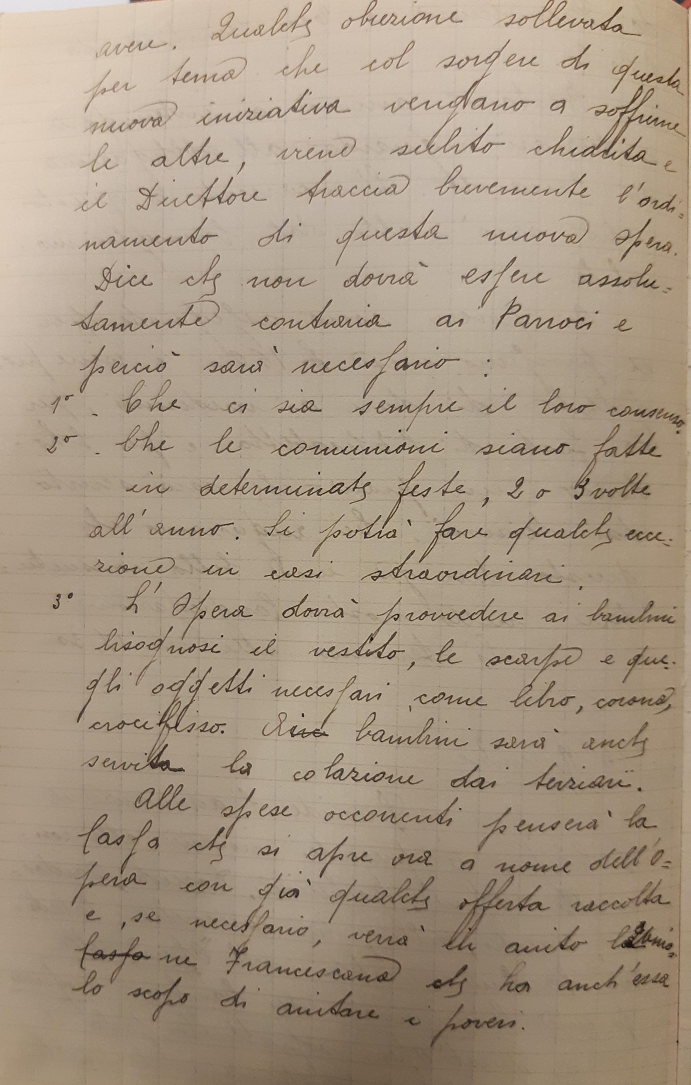 avere. Qualche obiezione sollevata
per tema che col sorgere di questa
nuova iniziativa vengano a soffrirne
le altre, viene subito chiarita e
il Direttore traccia brevemente l'ordi=
namento di questa nuova Opera.
Dice che non dovrà essere assolu=
tamente contraria ai Parroci e
perciò sarà necessario :
1° . Che ci sia sempre il loro consenso.
2° . Che le comunioni siano fatte
in determinate feste, 2 o 3 volte
all'anno. Si potrà fare qualche ecce=
zione in casi straordinari.
3° L'Opera dovrà provvedere ai bambini
bisognosi il vestito, le scarpe e que=
gli oggetti necessari come libro, corona,
crocifisso. Ai bambini sarà anche
servita la colazione dai terziari.
Alle spese occorrenti penserà la
Cassa che si apre ora a nome dell'O=
pera con già qualche offerta raccolta
e, se necessario, verrà in aiuto l'Unio=
Cassa ne Francescana che ha anch'essa
lo scopo di aiutare i poveri.